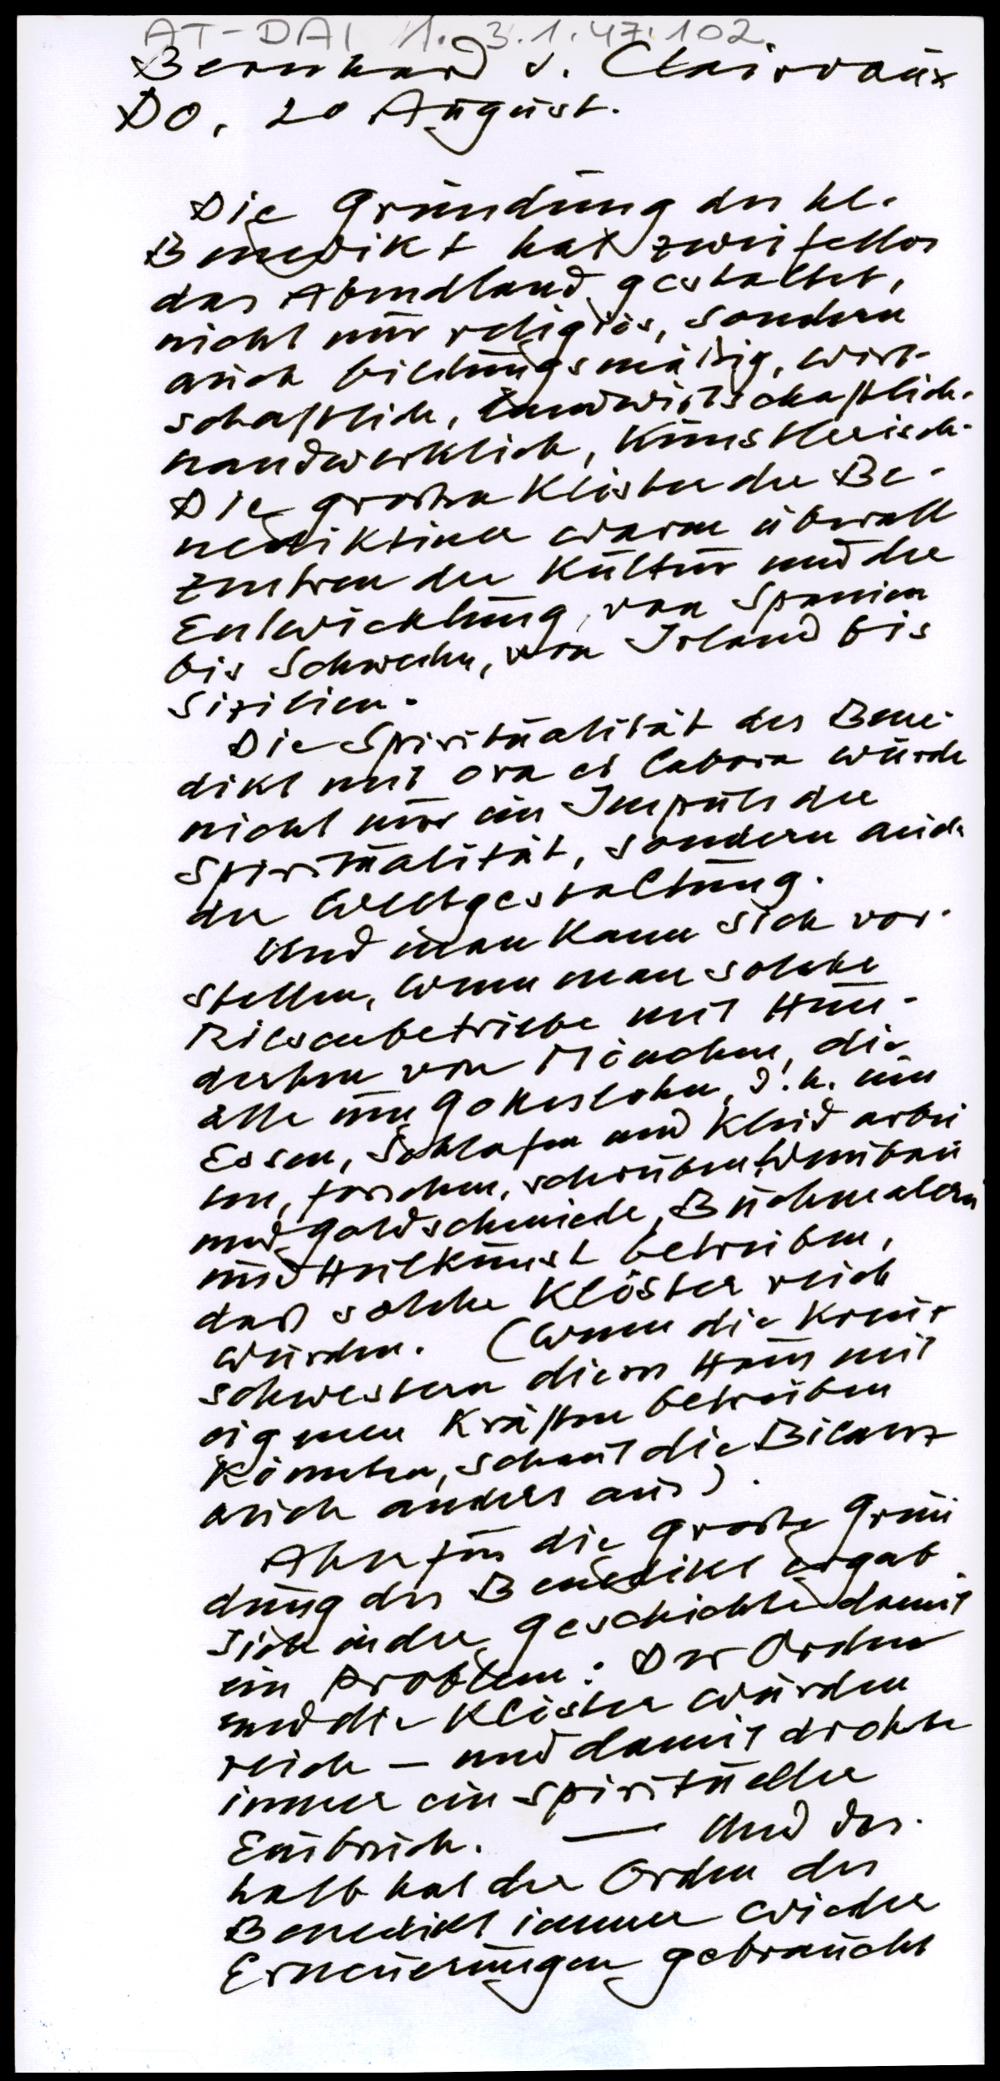 AT-DAI 1.3.1.47.102
Bernhard v. Clairvaux
Do, 20 August.
Die Gründung des hl.
Benedikt hat zweifellos
das Abendland gestaltet,
nicht nur religiös, sondern
auch bildungsmäßig, wirt-
schaftlich, landwirtschaftlich.
handwerklich, künstlerisch.
Die großen Klöster der Be-
nediktiner waren überall
Zentren der Kultur und der
Entwicklung, von Spanien
bis Schweden, von Irland bis
Sizilien.
Die Spiritualität des Bene-
dikt mit ora et labora wurde
nicht nur ein Impuls der
Spiritualität, sondern auch
der Weltgestaltung.
Und man kann sich vor-
stellen, wenn man solche
Riesenbetriebe mit Hun-
derten von Mönchen, die
alle um Gotteslohn, d.h. um
Essen, Schlafen und Kleid arbei
ten, forschen, schreiben, Weinbau
und Goldschmiede, Buchmalerei
und Heilkunst betreiben,
daß solche Klöster reich
wurden. (Wenn die Kreuz
schwestern dieses Haus mit
eigenen Kräften betreiben
könnten, schaut die Bilanz
auch anders aus).
Aber für die große Grün
dung des Benedikt ergab
sich in der Geschichte damit
ein Problem: Der Orden
und die Klöster wurden
reich – und damit drohte
immer ein spiritueller
Einbruch. — Und des-
halb hat der Orden des
Benedikt immer wieder
Erneuerungen gebraucht